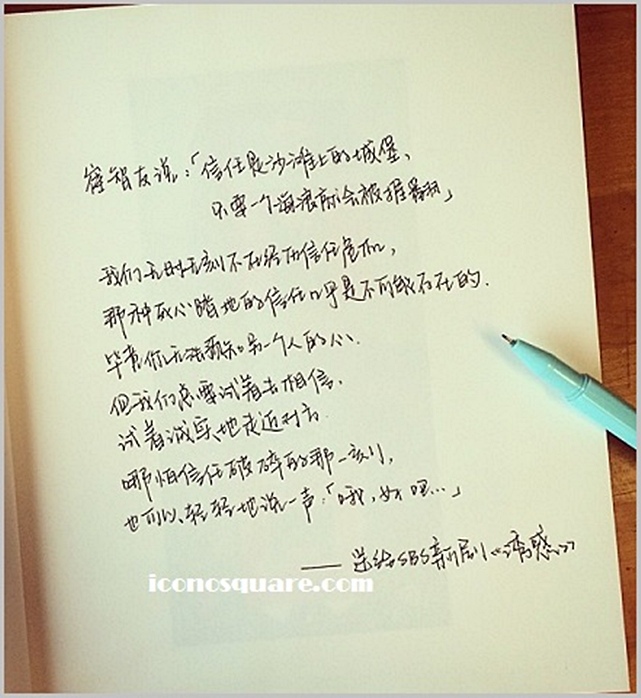 崔智友说：「信任是沙滩上的城堡，
只要一个海浪就会被摧毁」
我们无时无刻不在经历信任危机，
那种死心踏地的信任几乎是不可能存在的.
毕竟你无法预知另一个人的心.
但我们总要试着去相信，
试着诚实地走近对方.
哪怕信任破碎的那一刻，
也可以轻轻地说一声：「哦，好吧…」
—— 送给SBS新剧《诱惑》
iconosquare.com